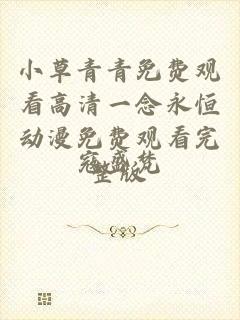 小草青青免费观
看高清一念永恒
动漫免费观看完
整版
寇盛梵